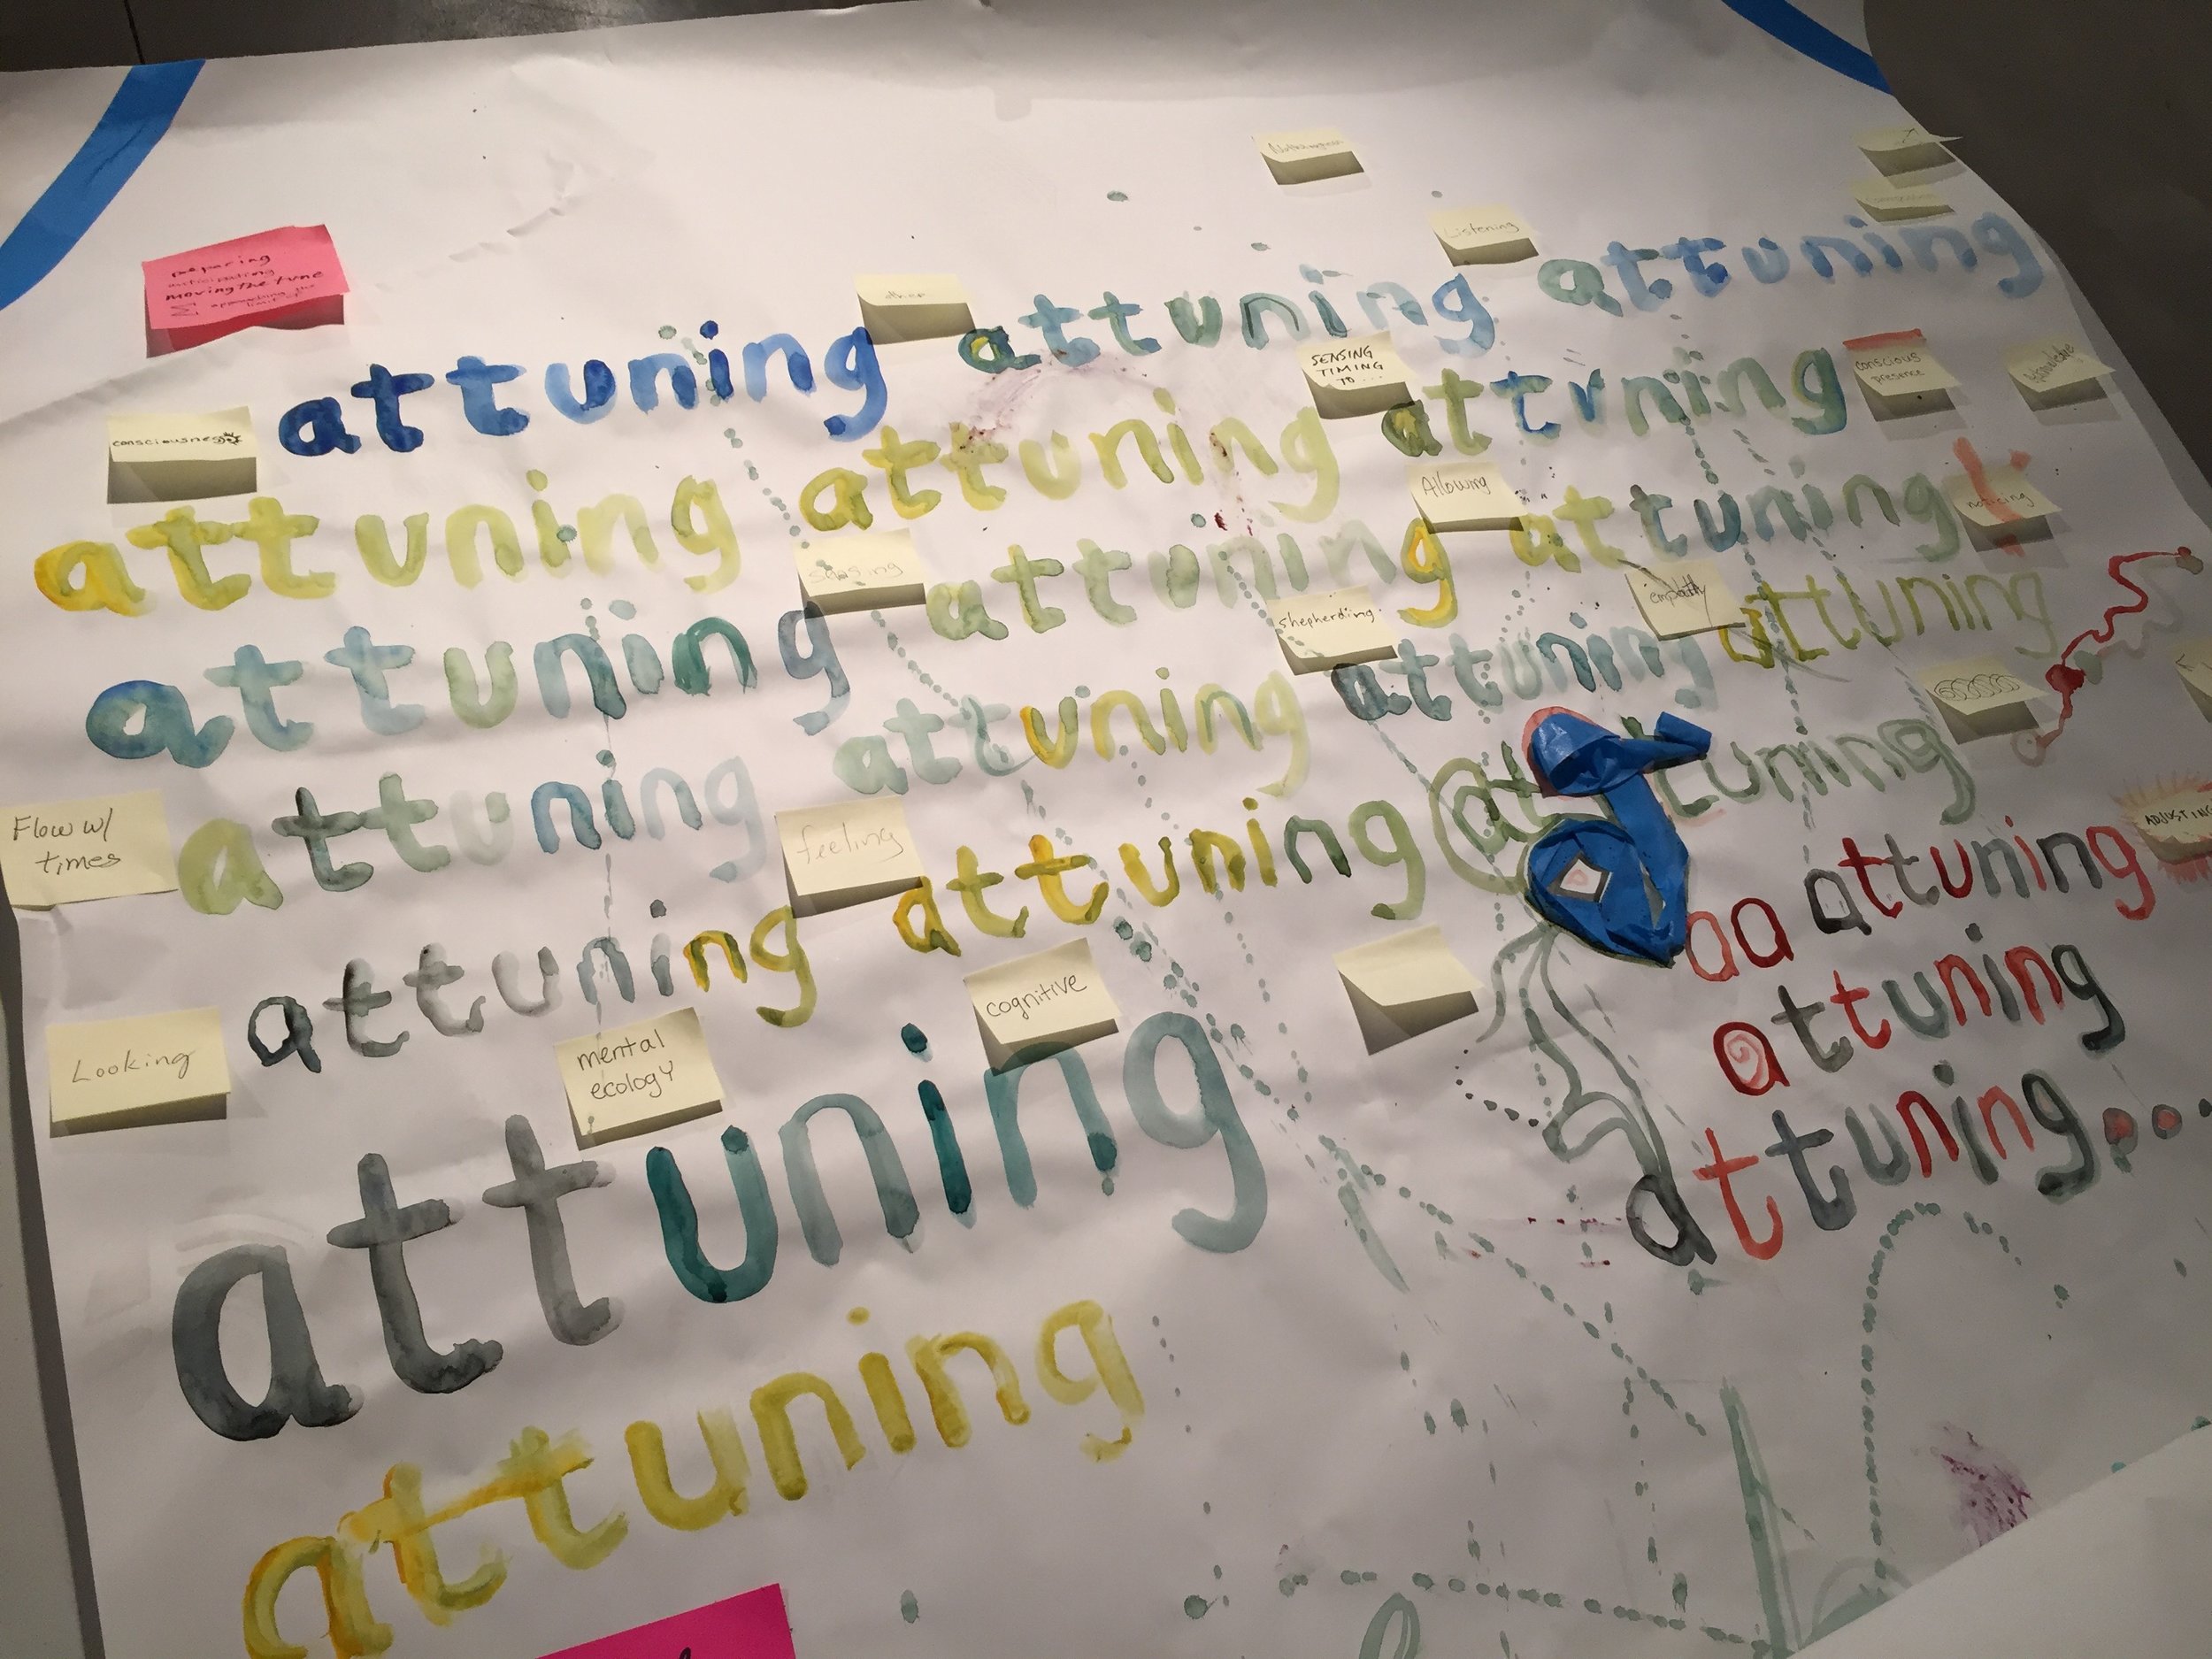 preparing
anticipating
moving the tune
approaching the
limit of
other
Listening
attuning attuning attuning
consciousness
SENSING
TIMING
TO ...
conscious
presence
attuning attuning attuning
sensing
Allowing
noticing
attuning attuning attuning
shepherding
empathy
attuning attuning attuning attuning
Flow w/
times
feeling
ADJUSTING
attuning attuning attuning
aa attuning
Looking
mental
ecology
cognitive
attuning
attuning
attuning...
attuning